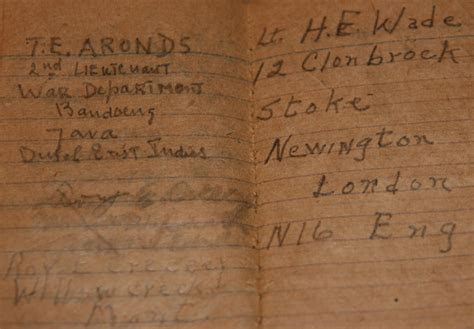 T.E. ARONDS
2nd LIEUTENANT
WAR DEPARTMENT
Bandoeng
Java
Dutch East Indies
Roy E Creecey
Willowcreek
Mont
Lt. H.E. Wade
12 Clonbrock
Stoke
Newington
London
N16 Eng